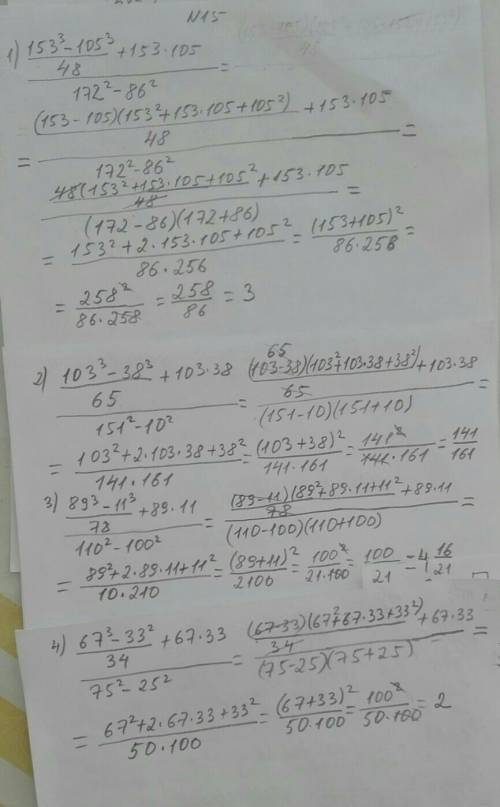 N15
1) (153³-105³)/48 + 153·105
172²-86² =
= ((153-105)(153²+153·105+105²))/48 + 153·105
172²-86² =
48(153²+153·105+105²)/48 + 153·105
(172-86)(172+86) =
= (153²+2·153·105+105²)/(86·256) = (153+105)²/(86·258) =
= 258²/(86·258) = 258/86 = 3
2) ((103³-38³)/65 + 103·38)/(151²-10²) = (65 (103-38)(103²+103·38+38²)/65 + 103·38)/((151-10)(151+10)) =
= (103²+2·103·38+38²)/(141·161) = (103+38)²/(141·161) = 141²/(141·161) = 141/161
3) ((89³-11³)/78 + 89·11)/(110²-100²) = ((89-11)(89²+89·11+11²)/78 + 89·11)/((110-100)(110+100)) =
= (89²+2·89·11+11²)/(10·210) = (89+11)²/2100 = 100²/(21·100) = 100/21 = 4 16/21
4) ((67³-33²)/34 + 67·33)/(75²-25²) = ((67-33)(67²+67·33+33²)/34 + 67·33)/((75-25)(75+25)) =
= (67²+2·67·33+33²)/(50·100) = (67+33)²/(50·100) = 100²/(50·100) = 2